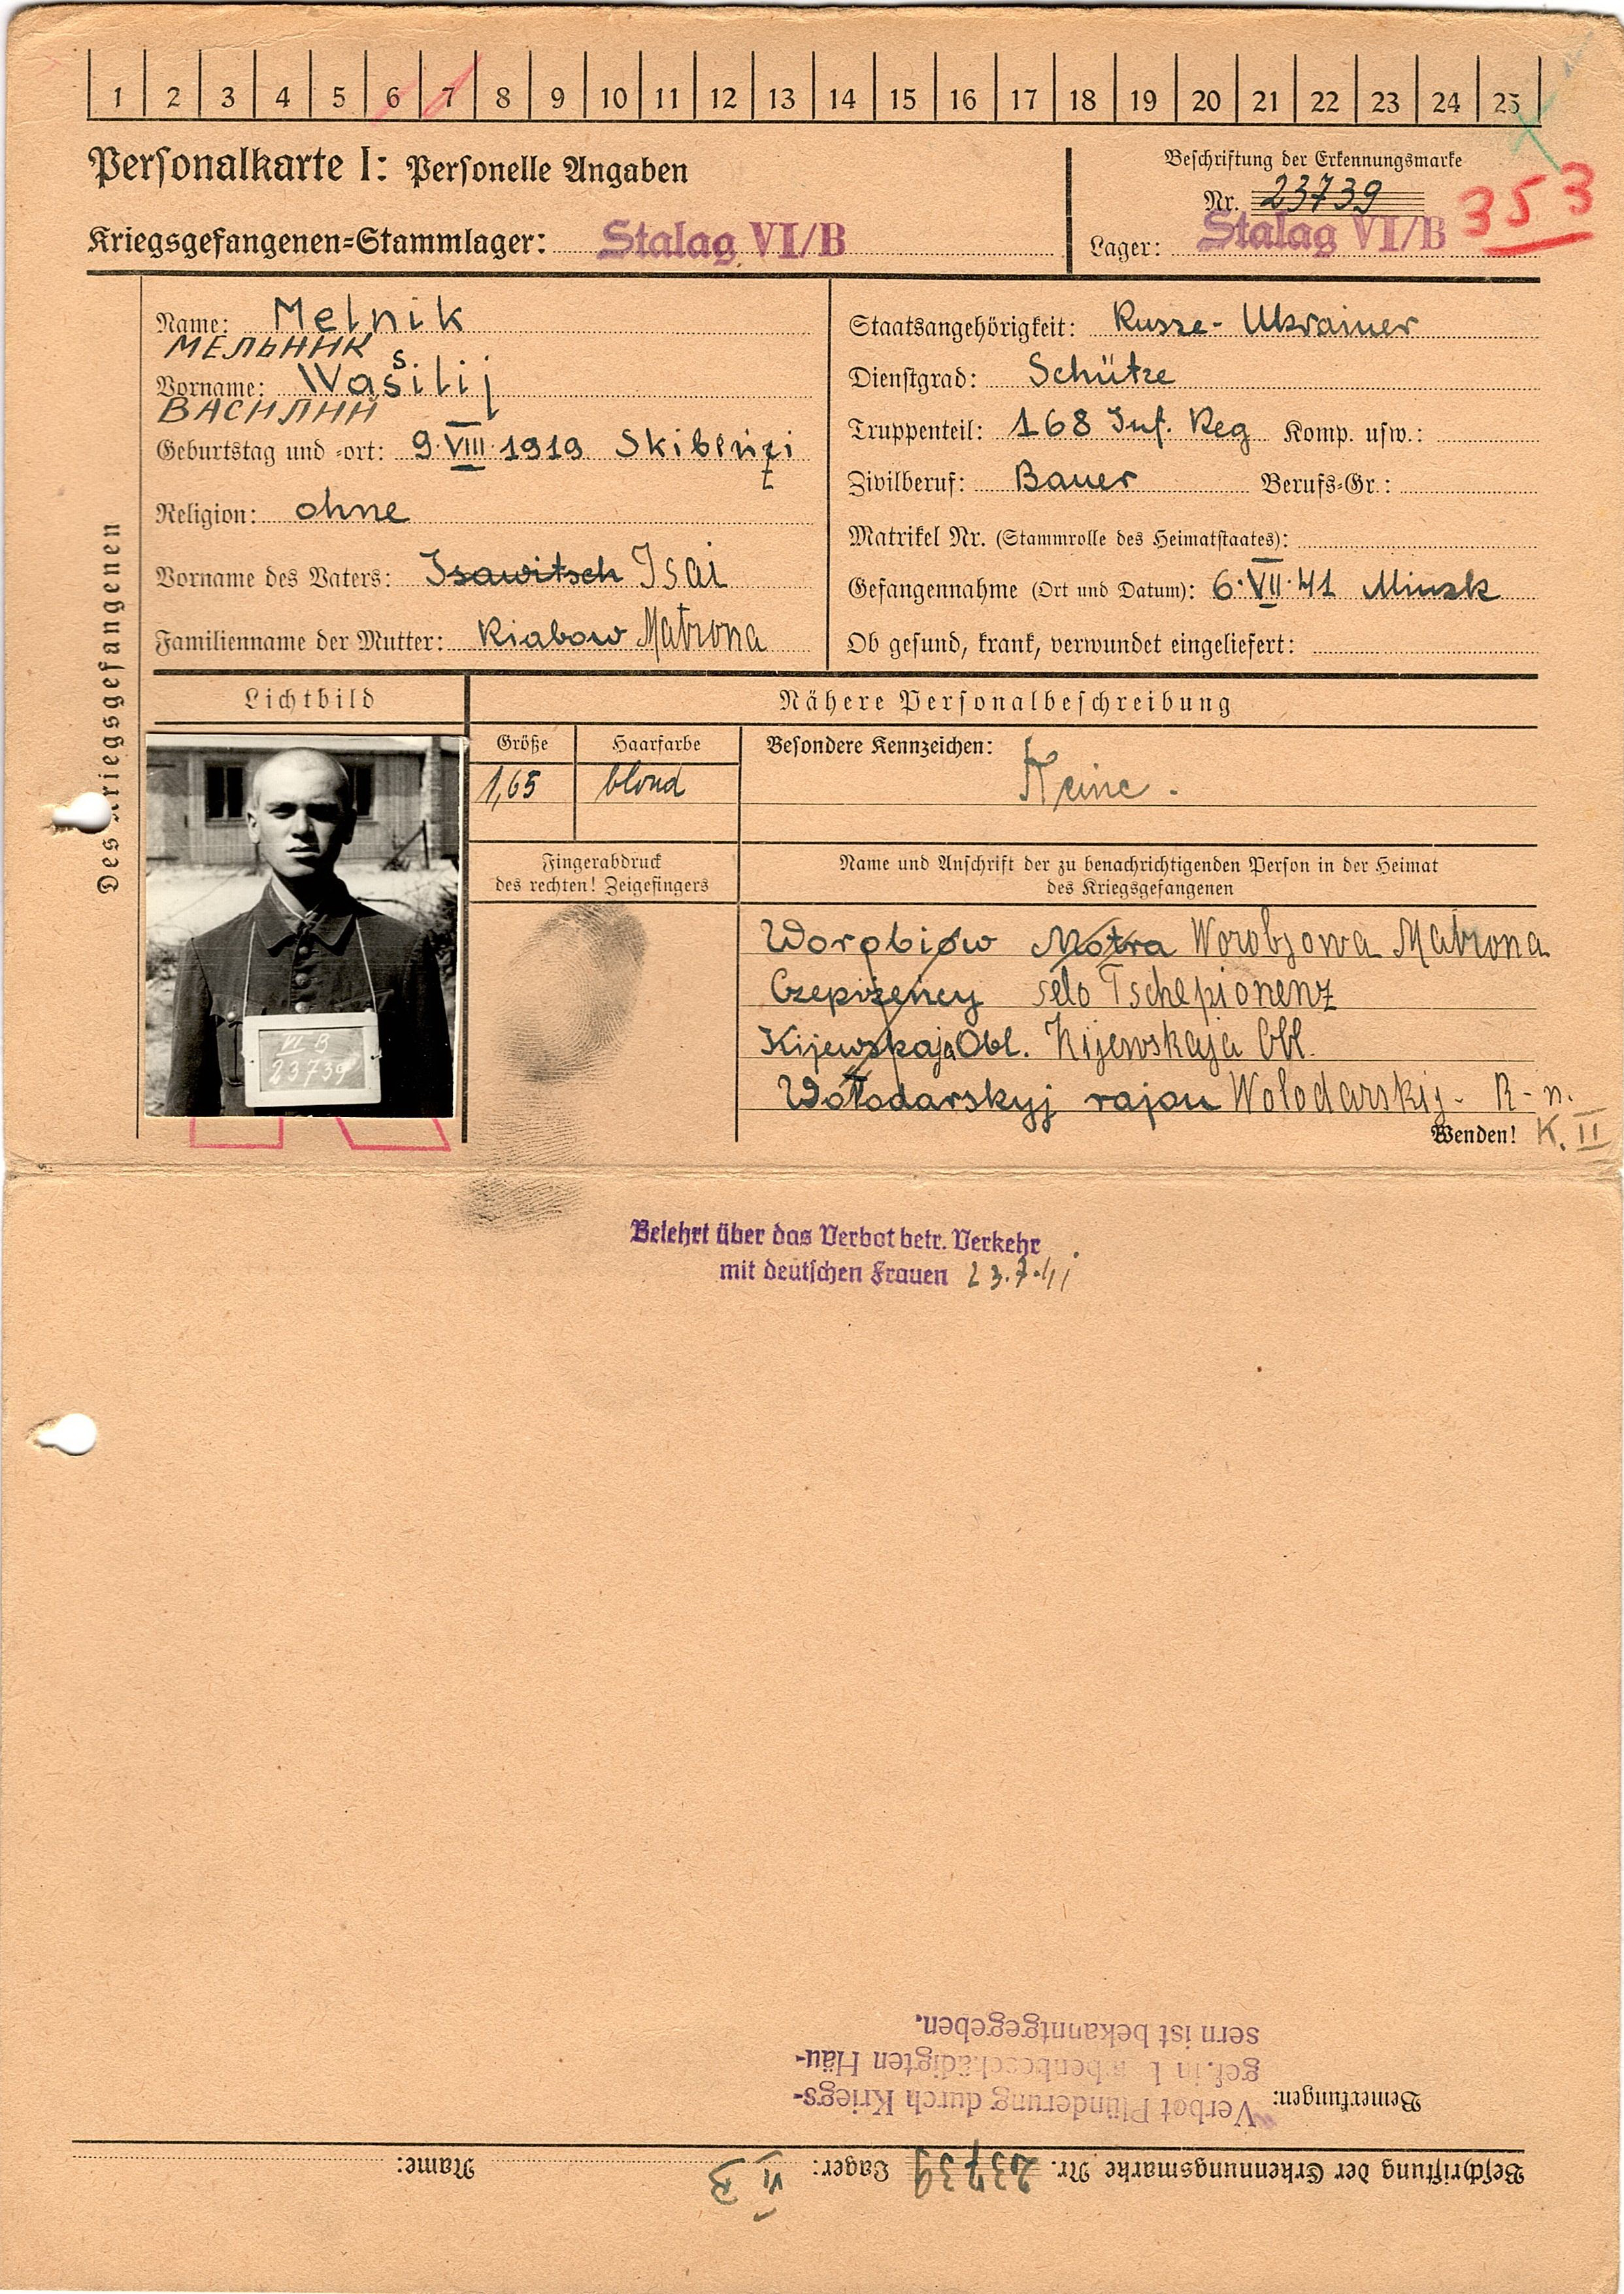 1 2 3 4 5 6 7 8 9 10 11 12 13 14 15 16 17 18 19 20 21 22 23 24 25
Personalkarte I: Personelle Angaben
Beschriftung der Erkennungsmarke
Nr. 23739
353
Kriegsgefangenen-Stammlager: Stalag VI/B
Lager: Stalag VI/B
Des Kriegsgefangenen
Name: Melnik
МЕЛЬНИК
Vorname: Wassilij
ВАСИЛИЙ
Geburtstag und -ort: 9.VIII.1919 Skibenzi
Religion: ohne
Vorname des Vaters: Isawitsch Isai
Familienname der Mutter: Riabow Matrona
Staatsangehörigkeit: Russe- Ukrainer
Dienstgrad: Schütze
Truppenteil: 168 Inf. Reg Komp. usw.:
Zivilberuf: Bauer Berufs-Gr.:
Matrikel Nr. (Stammrolle des Heimatstaates):
Gefangennahme (Ort und Datum): 6.VII.41 Minsk
Ob gesund, krank, verwundet eingeliefert:
Lichtbild
Nähere Personalbeschreibung
Größe Haarfarbe Besondere Kennzeichen:
1,65 blond Keine.
VI B
23739
Fingerabdruck
des rechten! Zeigefingers
Name und Anschrift der zu benachrichtigenden Person in der Heimat
des Kriegsgefangenen
Worobiow Motra Worobjowa Matrona
selo Tschepionenz
Kijewskaja Obl. Kijewskaja Obl.
Wołodarskyj rajon Wolodarskij- R-n.
Wenden! K. II
Belehrt über das Verbot betr. Verkehr
mit deutschen Frauen 23.7.41
Beschriftung der Erkennungsmarke Nr. 23739 Lager: VI B Name:
Bemerkungen: Verbot Plünderung durch Kriegs-
gef. in beschädigten Häu-
sern ist bekanntgegeben.